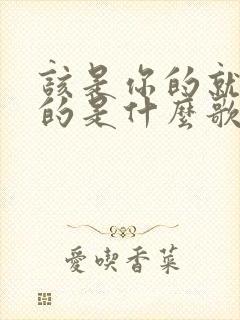 該是你的就
的是什麼歌
愛喫香菜